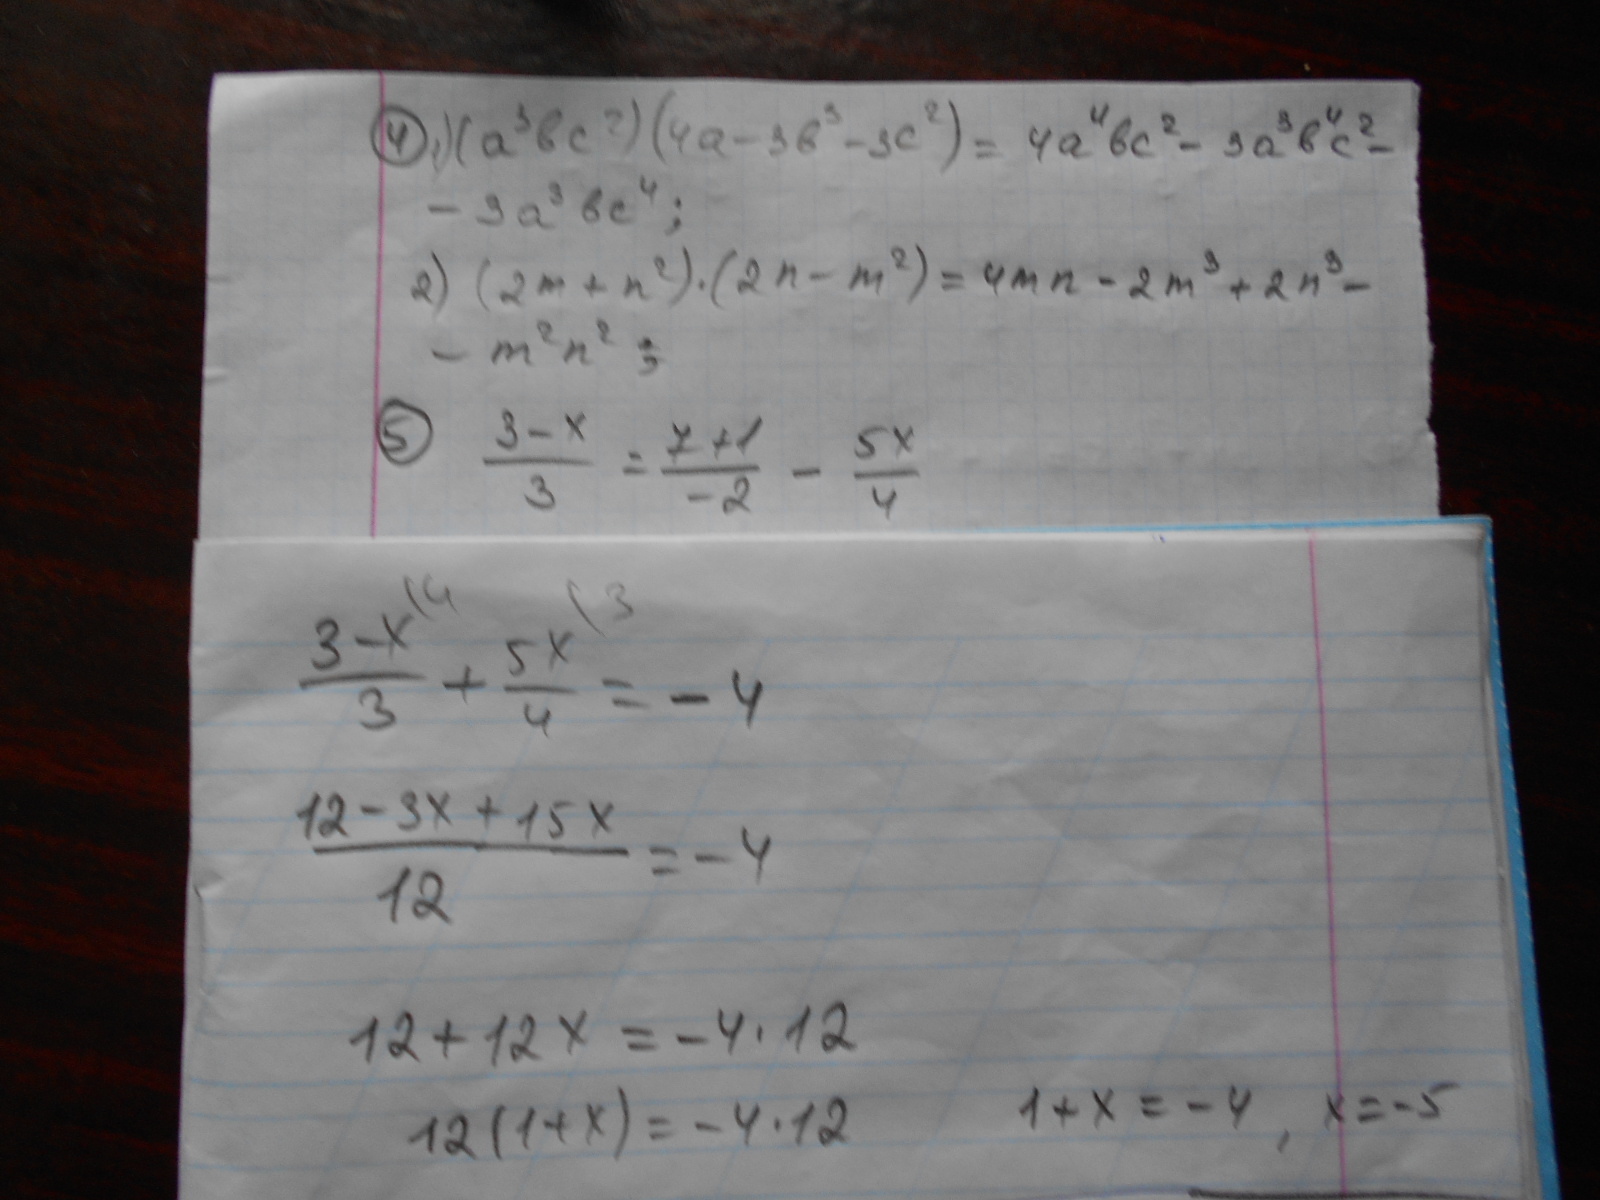 ④ 1) (a³вc²)(4a-3в³-3c²)= 4a⁴вc²- 3a³в⁴c²-
- 3a³вc⁴;
2) (2m+n²)·(2n-m²)=4mn-2m³+2n³-
- m²n²;
⑤ (3-x)/3 = (7+1)/-2 - 5x/4
(3-x)/3 (4 + 5x/4 (3 = -4
(12-3x+15x)/12 = -4
12+12x = -4·12
12(1+x)=-4·12 1+x=-4, x=-5